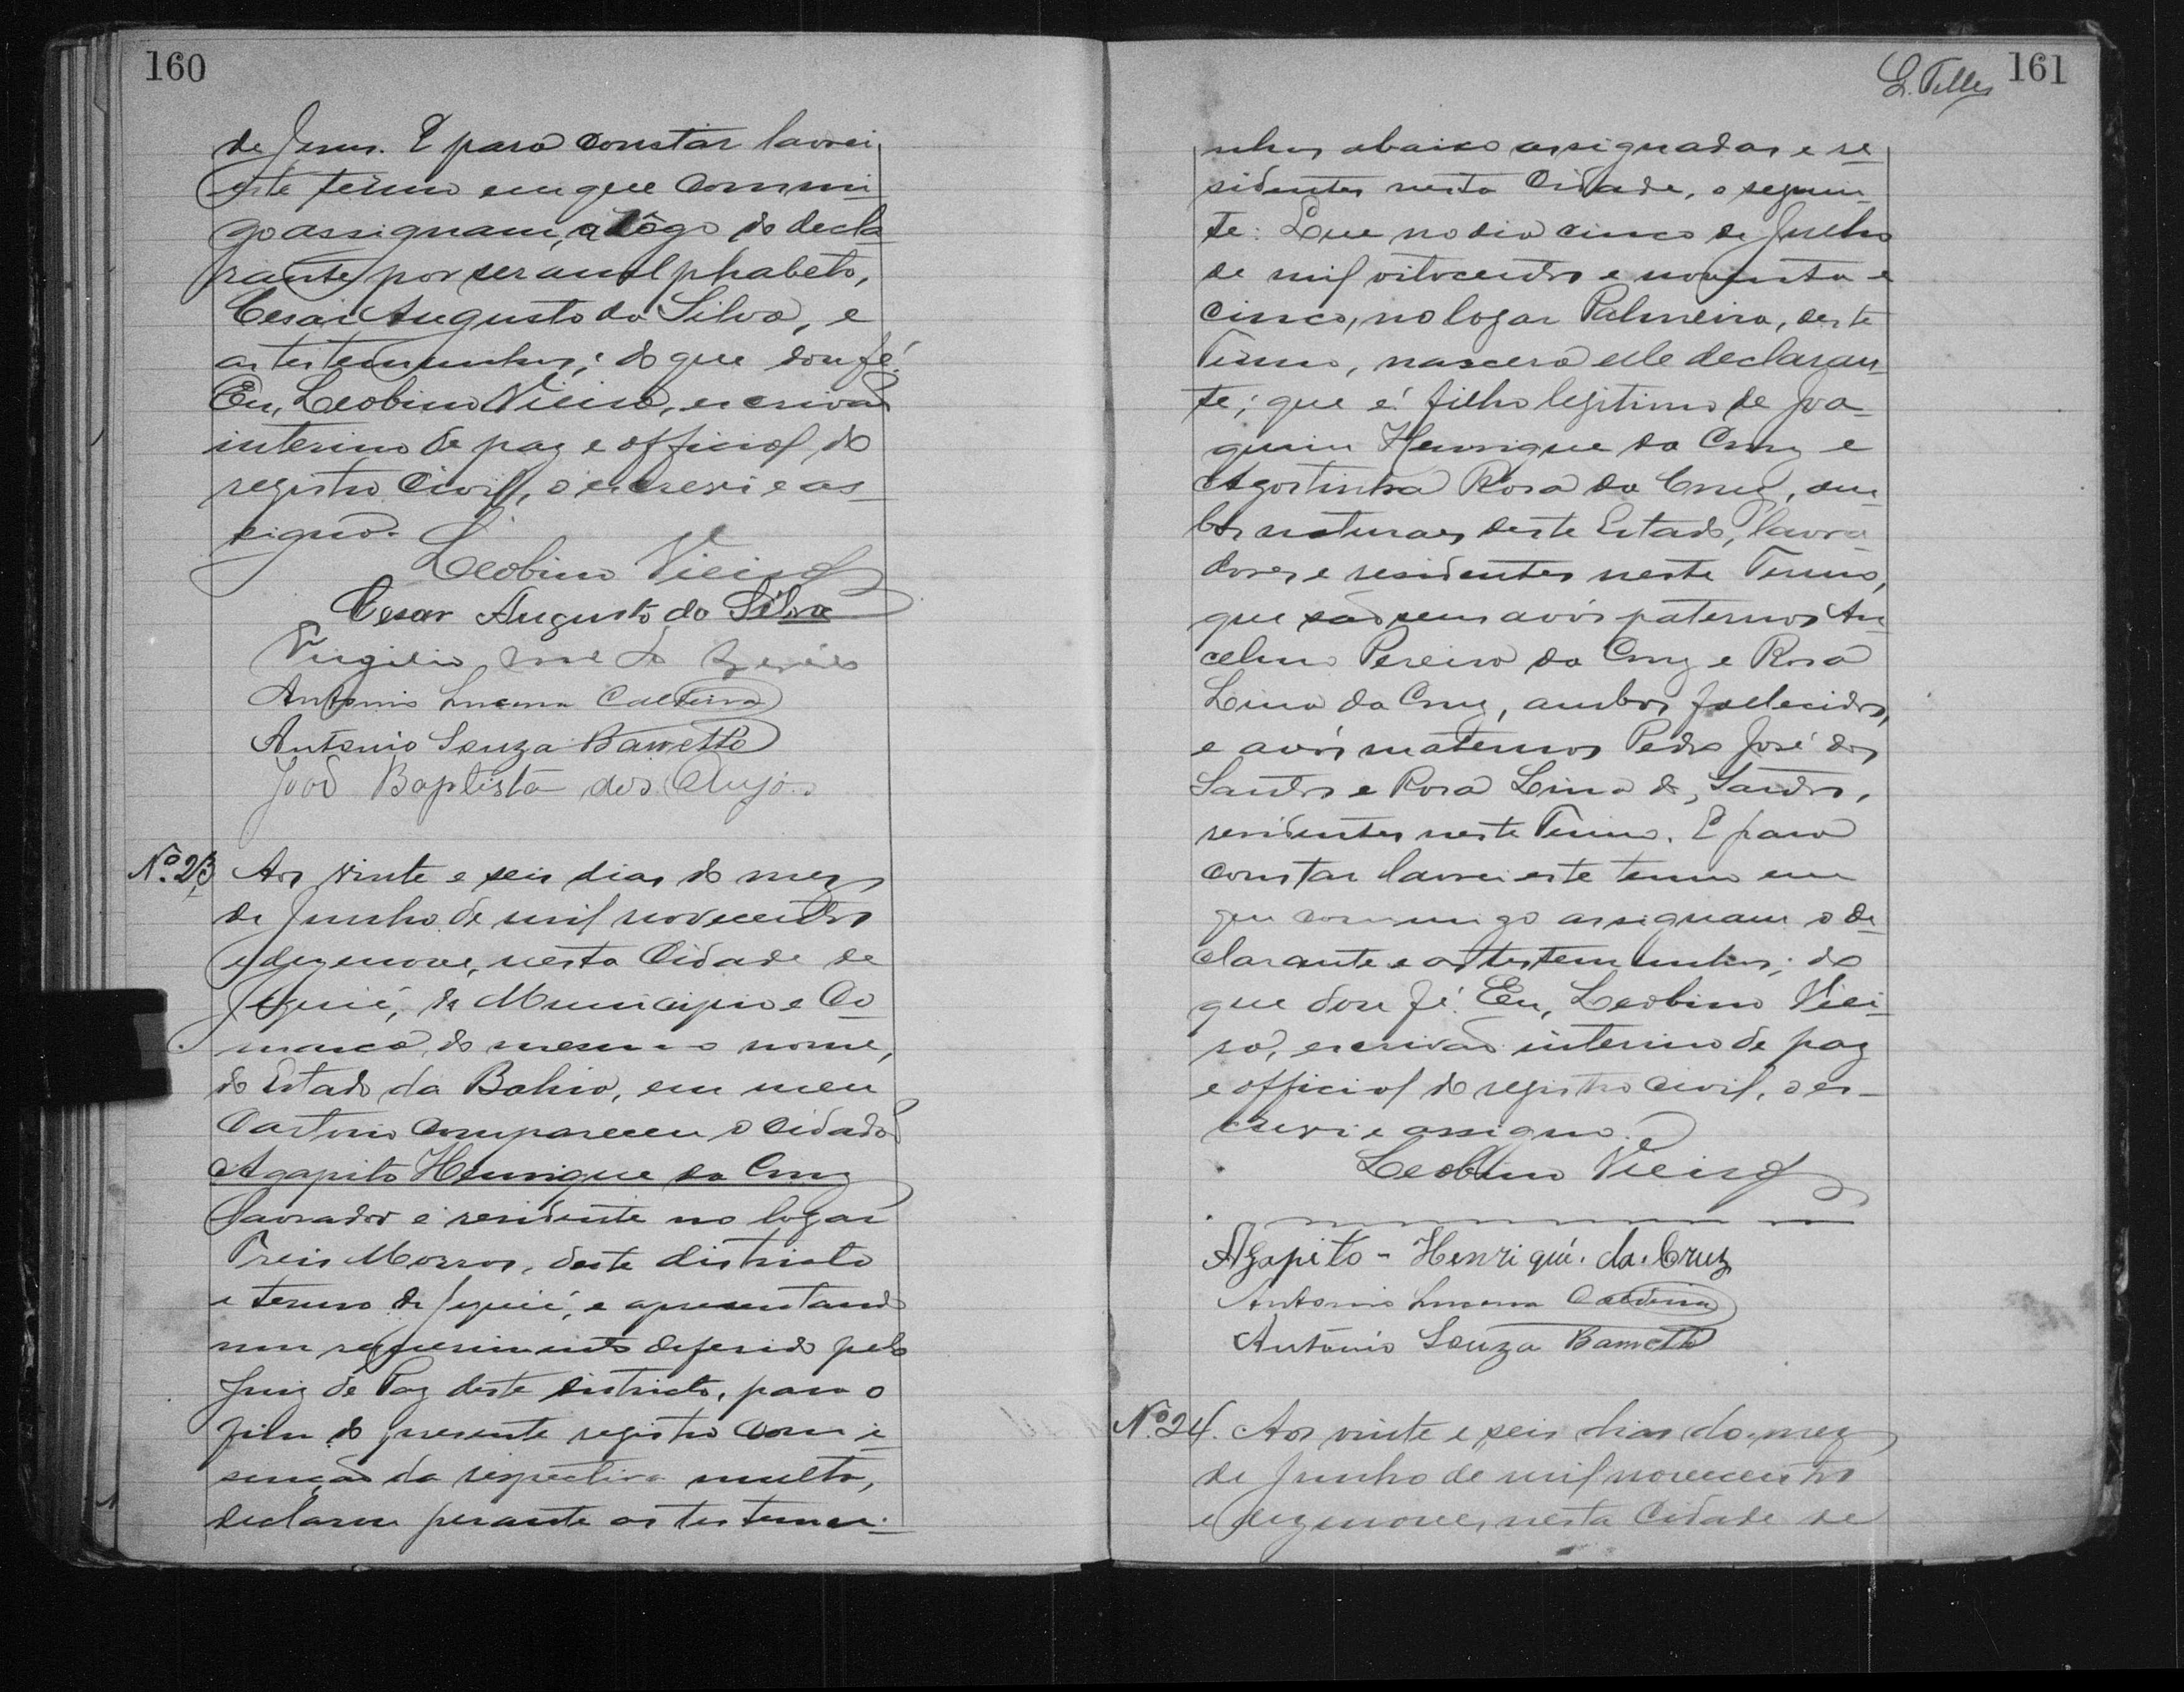 160
de Jesus. E para constar lavrei
este termo em que commi-
go assignam, a rôgo do decla
rante por ser analphabeto,
Cesar Augusto da Silva, e
as testemunhas; do que dou fé.
Eu, Leobino Vieira, escrivão
interino de paz e official do
registro civil, o escrevi e as-
signo.
Leobino Vieira
Cesar Augusto da Silva
Virgilio
Antonio Lucena Caldeira
Antonio Souza Barretto
João Baptista dos Anjos
Nº 23 Aos vinte e seis dias do mez
de Junho de mil novecentos
e dezenove, nesta Cidade de
Jequié, do Municipio e Co-
marca do mesmo nome,
do Estado da Bahia, em meu
Cartorio compareceu o cidadão
Agapito Henrique da Cruz
lavrador e residente no logar
Treis Morros, deste districto
e termo de Jequié, e apresentando
um requerimento deferido pelo
Juiz de Paz deste districto, para o
fim do presente registro com i-
senção da respectiva multa,
declarou perante as testemu-
L. Telles 161
nhas abaixo assignadas e re-
sidentes nesta Cidade, o seguin-
te: Que no dia cinco de Julho
de mil oitocentos e noventa e
cinco, no logar Palmeira, deste
Termo, nascera elle declaran-
te; que é filho legitimo de Joa-
quim Henrique da Cruz e
Agostinha Rosa da Cruz, am-
bos naturaes deste Estado, lavra-
dores e residentes neste Termo,
que são seus avós paternos An-
celmo Pereira da Cruz e Rosa
Lina da Cruz, ambos fallecidos,
e avós maternos Pedro José dos
Santos e Rosa Lina dos Santos,
residentes neste Termo. E para
constar lavrei este termo em
que commigo assignam o de-
clarante e as testemunhas; do
que dou fé. Eu, Leobino Viei-
ra, escrivão interino de paz
e official do registro civil, o es-
crevi e assigno.
Leobino Vieira
Agapito - Henrique. da. Cruz
Antonio Lucena Caldeira
Antonio Souza Barretto
Nº 24. Aos vinte e seis dias do mez
de Junho de mil novecentos
e dezenove, nesta Cidade de